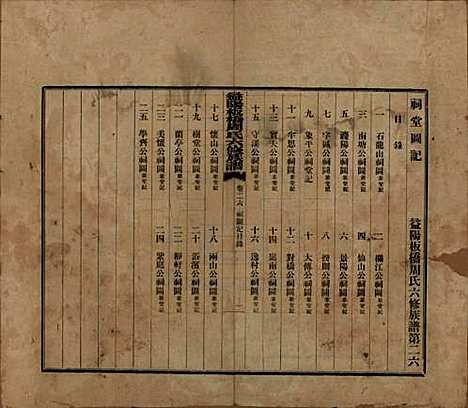 益陽板橋周氏六修族譜第二六
祠堂圖記
目錄
一 石龍山祠圖
二 公祠圖
三 南塘公祠圖
四 仙山公祠圖
五 公祠圖
六 景陽公祠圖
七 字區公祠圖
八 公祠圖
九 象平公祠記
十 大傳公祠圖
十一 宇思公祠圖
十二 對橋公祠圖
十三 寶夫公祠圖
十四 嵐南公祠圖
十五 守謨公祠圖
十六 逸村公祠圖
益陽板橋周氏六修族譜
卷二六 祠圖記目錄
十七 懷山公祠圖
十八 兩山公祠圖
十九 樹堂公祠圖
二十 公祠圖
二一 蘭亭公祠圖
二二 靜軒公祠圖
二三 美懷公祠圖
二四 紫庭公祠圖
二五 學齊公祠圖